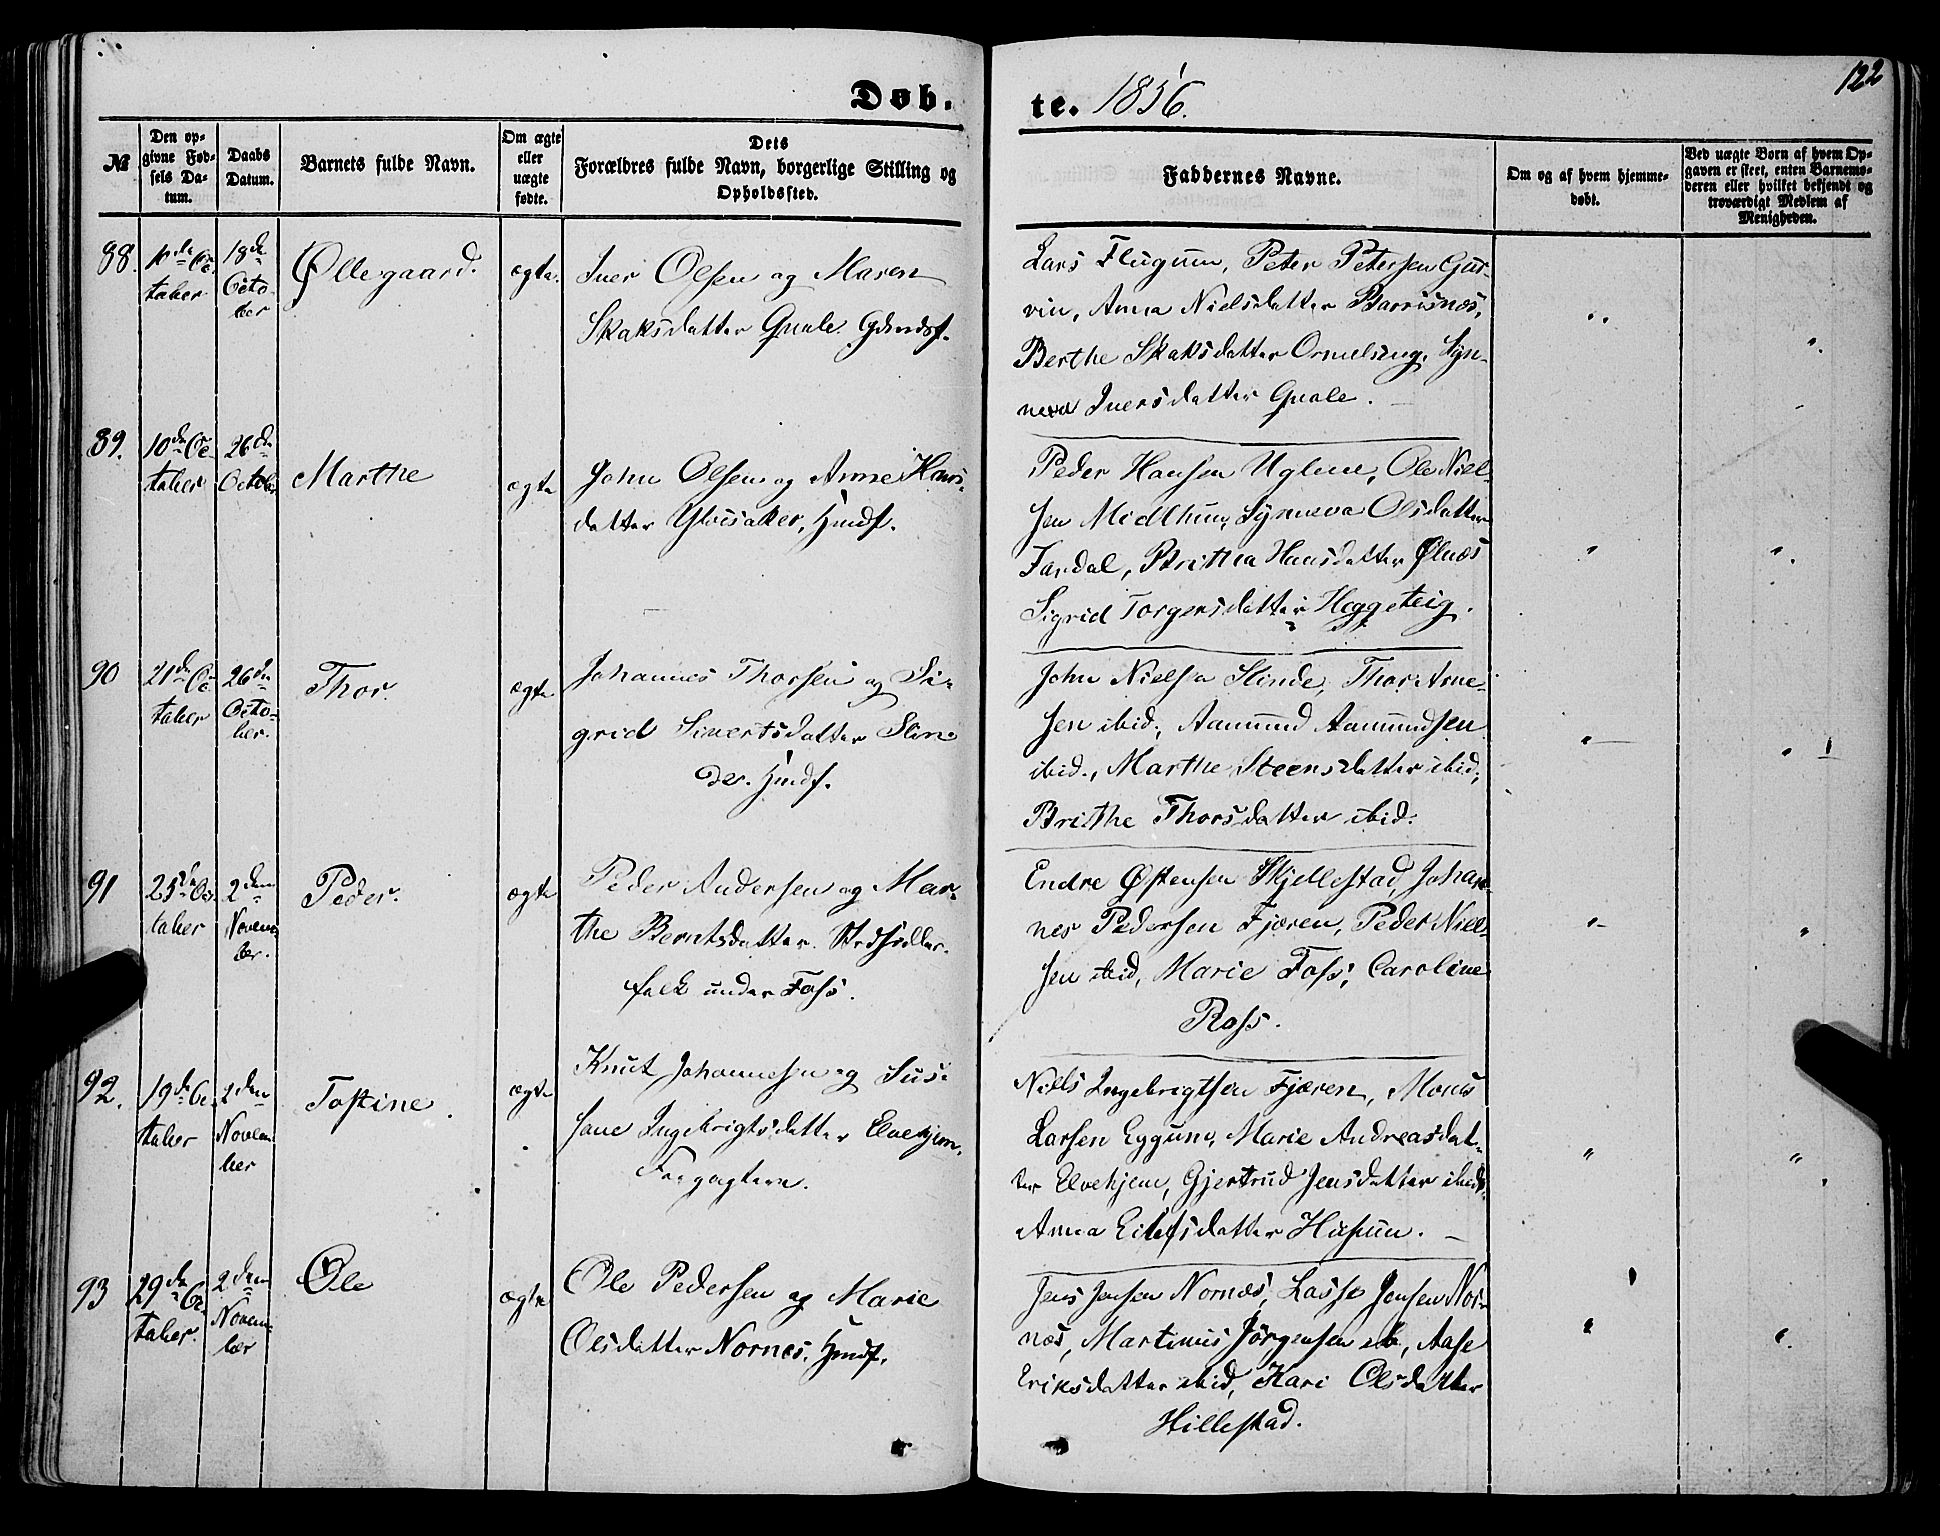 122
Døb- te. 1856.
№
Den op-
givne Fød-
sels Da-
tum.
Daabs
Datum.
Barnets fulde Navn.
Om ægte
eller
uægte
fødte.
Dets
Forældres fulde Navn, borgerlige Stilling og
Opholdssted.
Faddernes Navne.
Om og af hvem hjemme-
døbt.
Ved uægte Børn af hvem Op-
gaven er skeet, enten Barnemo-
deren eller hvilket bekjendt og
troværdigt Medlem af
Menigheden.
88.
de Oc
tober
18de
Octo
ber
Øllegaard.
ægte.
Iver Olsen og Maren
Skaksdatter Quale. Gdmdsf.
Lars Flugum, Peter Petersen Gur-
vin, Anna Nielsdatter Barsnæs,
Berthe Skaksdatter Ormelseng, Syn-
neva Iversdatter Quale.
89.
10de Oc
tober
26de
October
Marthe
ægte
John Olsen og Anne Hans-
datter Ylvisaker, Hmdf.
Peder Hansen Uglum, Ole Niel-
sen Midlhun, Synneva Olsdatter
Fardal, Britha Hansdatter Ølnæs
Sigrid Torgersdatter Heggeteig.
90
21de Oc
tober
26de
Octo-
ber.
Thor.
ægte
Johannes Thorsen og Si-
grid Sivertsdatter Slin-
de. Hmdf.
John Nielsen Slinde, Thor Arne-
sen ibid; Aamund Aamundsen
ibid., Marthe Steensdatter ibid;
Brithe Thorsdatter ibid.
91
25de Oc
tober
2den
Novem
ber.
Peder.
ægte
Peder Andersen og Mar-
the Berntsdatter. Strdsidder-
folk under Foss.
Endre Østensen Skjellestad, Johan-
nes Pedersen Fjæren, Peder Niel-
sen ibid, Marie Foss, Caroline
Ross.
92.
19de Oc
tober
2den
Novem
ber
Tostine.
ægte
Knut Johannesen og Sus-
sane Ingebrigtsdatter Elvekjem,
Forpagtere.
Niels Ingebrigtsen Fjæren, Mons
Larsen Eggum, Marie Andreasdat-
ter Elvekjem, Gjertrud Jensdatter ibid,
Anna Eilefsdatter Husum.
93
29de Oc
tober.
2den
Novem
ber
Ole
ægte
Ole Pedersen og Marie
Olsdatter Nornes. Hmdf.
Jens Jensen Nornæs, Lasse Jensen Nor-
næs, Martinus Jørgensen ib, Aase
Eriksdatter ibid, Kari Olsdatter
Hillestad.